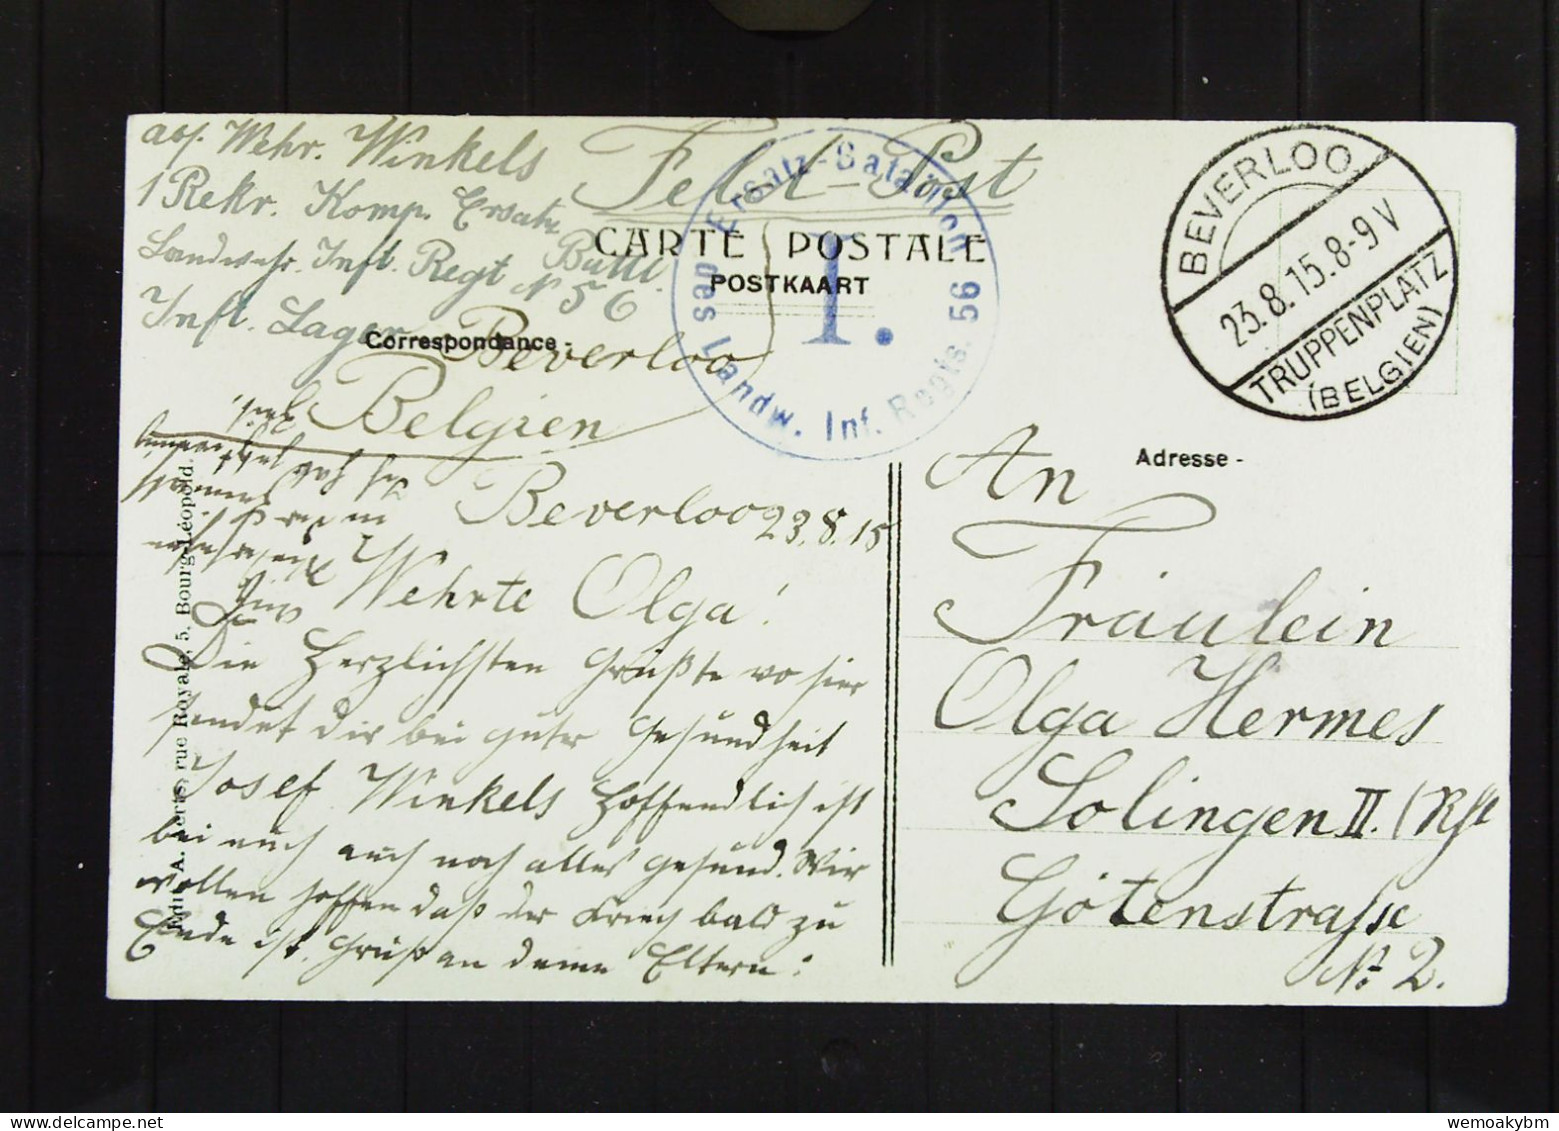 abs. Wehr. Winkels
1 Rekr. Komp. Ersatz
Battl.
Landwehr. Inft. Regt № 56
Inft. Lager Beverloo
Belgien
Feld-Post
CARTE POSTALE
POSTKAART
Correspondance -
Ersatz-Bataillon
I.
des Landw. Inf. Regts. 56
BEVERLOO
23.8.15.8-9 V
TRUPPENPLATZ
(BELGIEN)
Beverloo 23.8.15
Wehrte Olga!
Die Herzlichsten Grüßte vo hier
sendet dir bei guter Gesundheit
Josef Winkels Hoffendlich ist
bei euch auch noch alles gesund. Wir
wollen hoffen daß der Krieg bald zu
Ende ist. Gruß an deine Eltern:
Adresse -
An
Fräulein
Olga Hermes
Solingen II. (Rh
Götenstrasse
№ 2.
Edit. A. Aerts, rue Royale, 5, Bourg-Léopold.
www.delcampe.net
wemoakybm